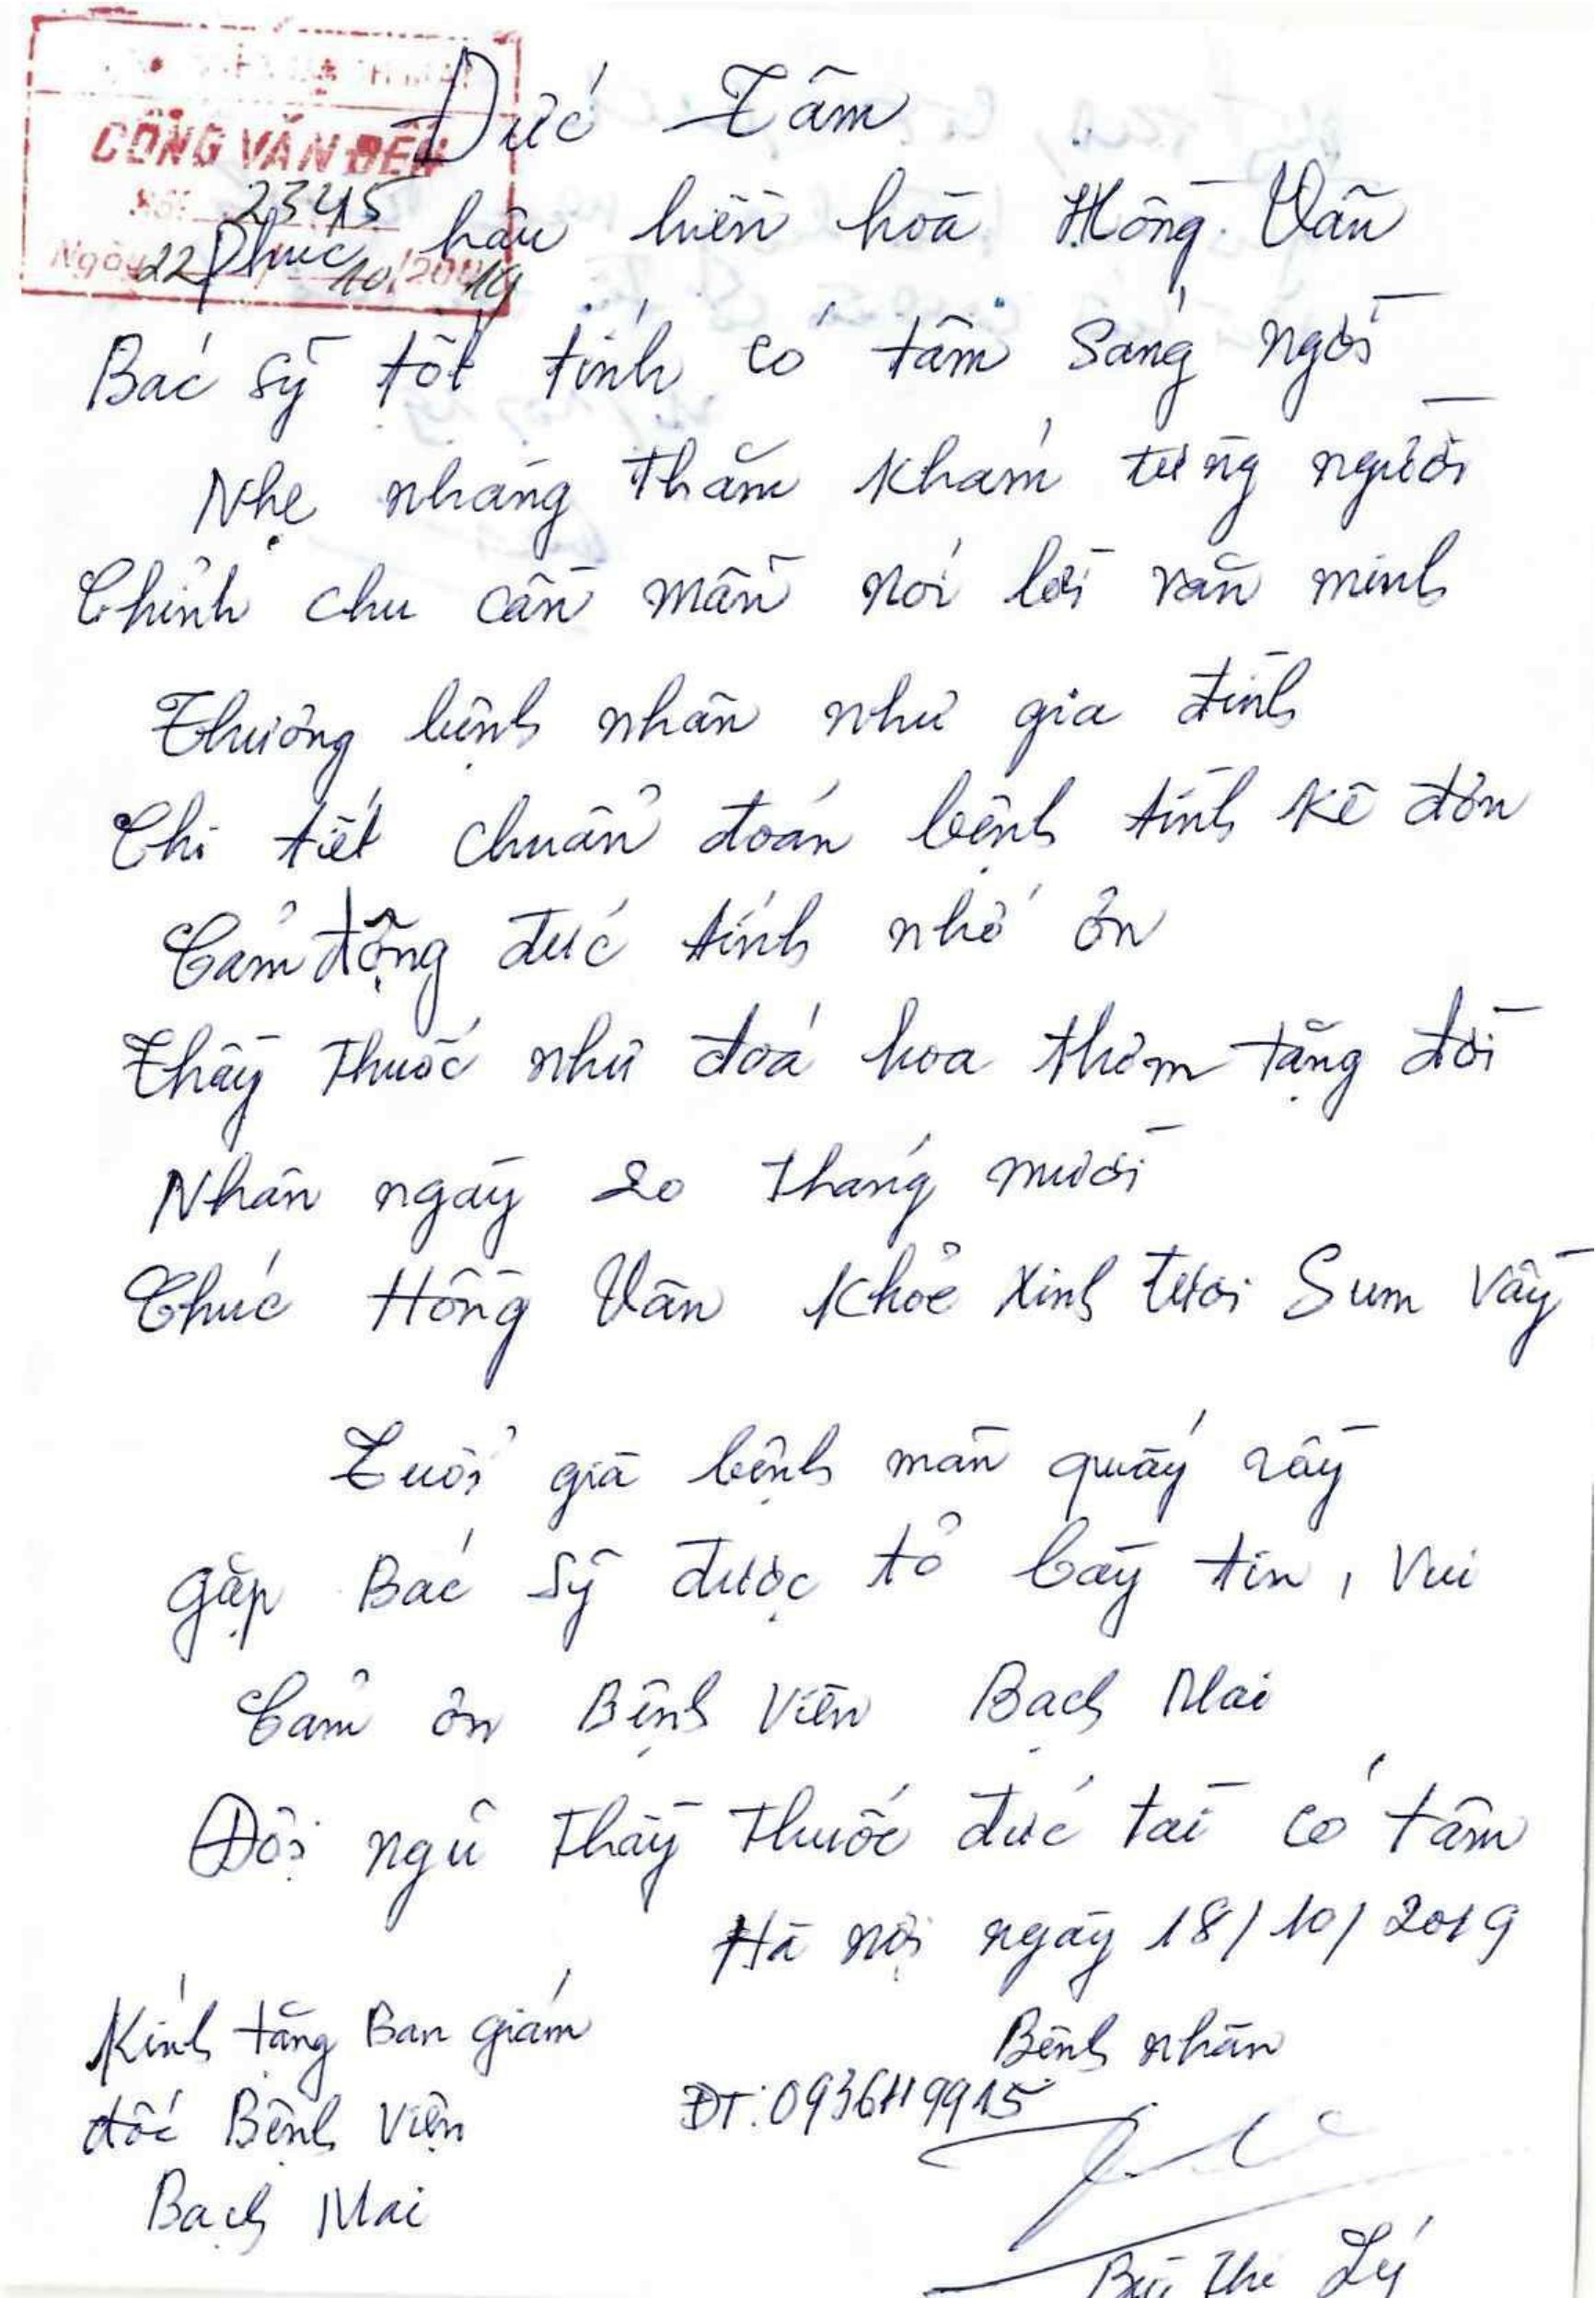 CÔNG VĂN ĐẾN
Số: 2345
Ngày 22/10/2019
Đức Tâm
Phúc hậu hiền hoà Hồng Vân
Bác sỹ tốt tính có tâm sáng ngời
Nhẹ nhàng thăm khám từng người
Chỉnh chu cần mẫn nói lời văn minh
Thương bệnh nhân như gia đình
Chi tiết chuẩn đoán bệnh tình kê đơn
Cảm động đức tính nhớ ơn
Thầy thuốc như đoá hoa thơm tặng đời
Nhân ngày 20 tháng mười
Chúc Hồng Vân khoẻ xinh tươi Sum vầy
Tuổi già bệnh mãn quấy rầy
gặp Bác sỹ được tỏ bày tin, vui
Cảm ơn Bệnh viện Bạch Mai
Đội ngũ thầy thuốc đức tài có tâm
Hà nội ngày 18/10/2019
Kính tặng Ban giám
đốc Bệnh viện
Bạch Mai
Bệnh nhân
ĐT: 0936119915
Bùi Thị Lý